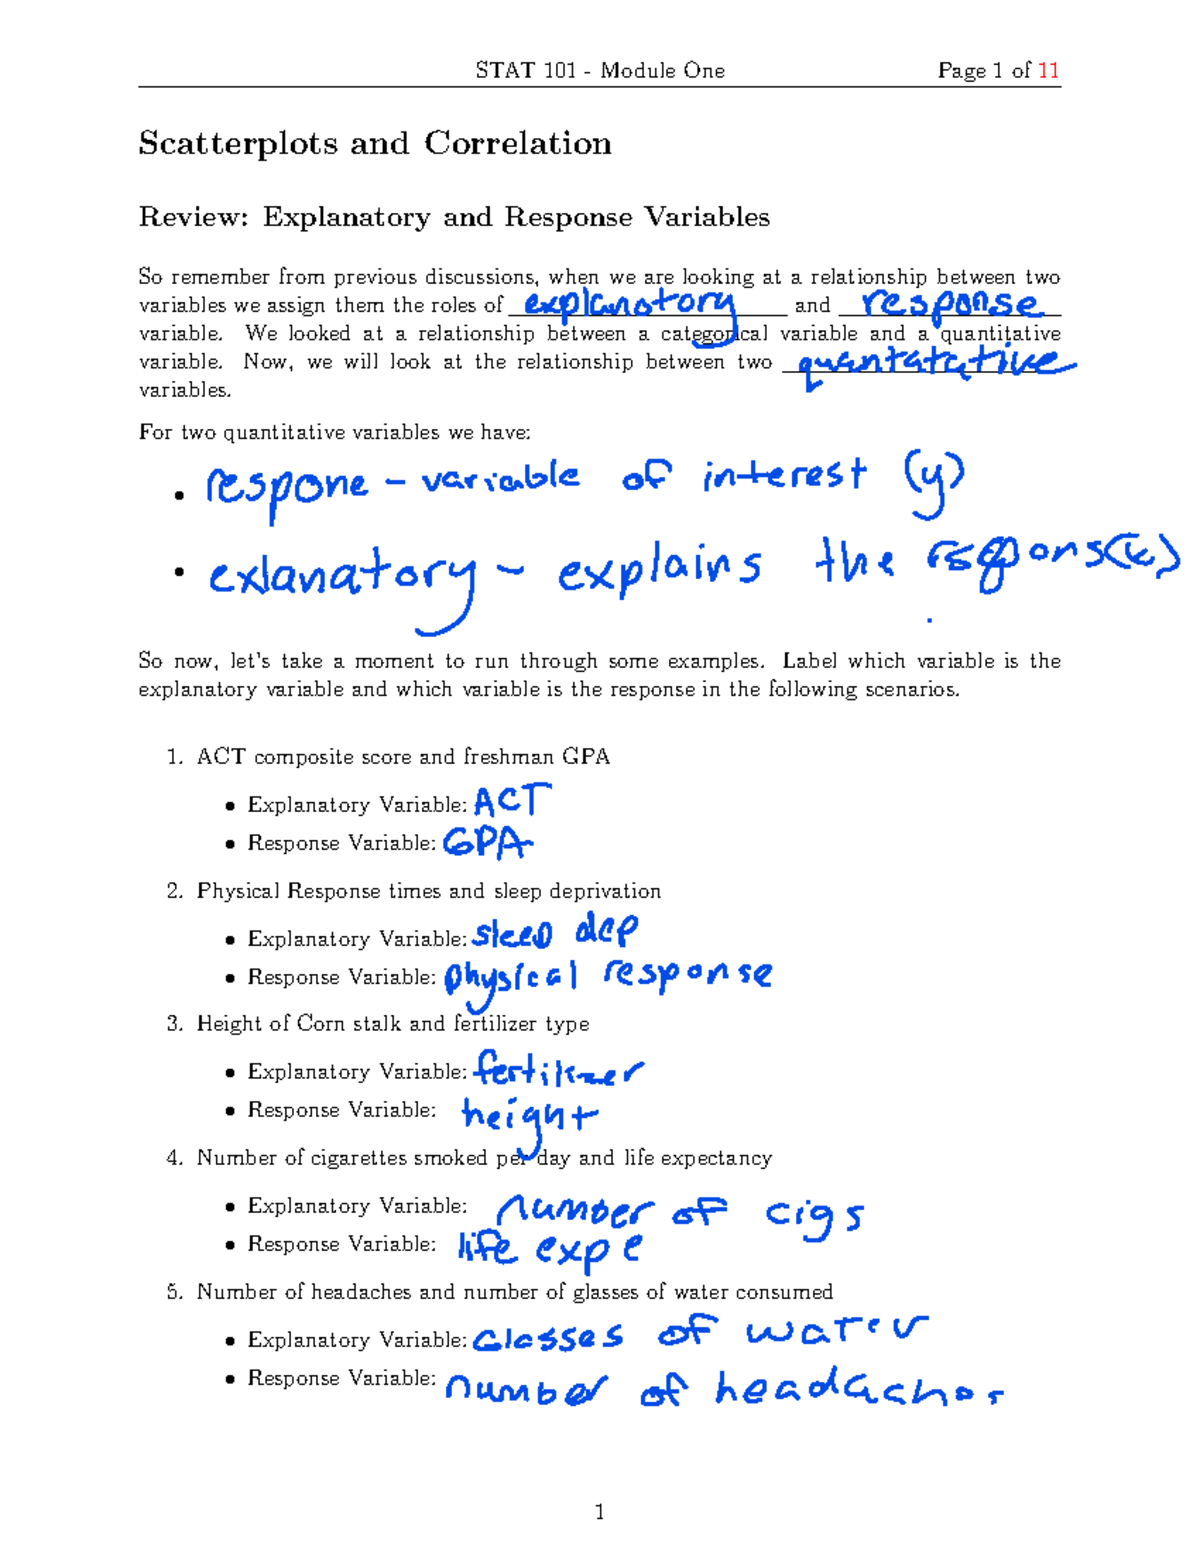 STAT 101 - Module One Page 1 of 11
Scatterplots and Correlation
Review: Explanatory and Response Variables
So remember from previous discussions, when we are looking at a relationship between two
variables we assign them the roles of explanatory and response
variable. We looked at a relationship between a categorical variable and a quantitative
variable. Now, we will look at the relationship between two quantatative
variables.
For two quantitative variables we have:
• respone - variable of interest (y)
• exlanatory - explains the respons(x)
So now, let's take a moment to run through some examples. Label which variable is the
explanatory variable and which variable is the response in the following scenarios.
1. ACT composite score and freshman GPA
• Explanatory Variable: ACT
• Response Variable: GPA
2. Physical Response times and sleep deprivation
• Explanatory Variable: sleep dep
• Response Variable: physical response
3. Height of Corn stalk and fertilizer type
• Explanatory Variable: fertilizer
• Response Variable: height
4. Number of cigarettes smoked per day and life expectancy
• Explanatory Variable: number of cigs
• Response Variable: life expe
5. Number of headaches and number of glasses of water consumed
• Explanatory Variable: Glasses of water
• Response Variable: number of
1